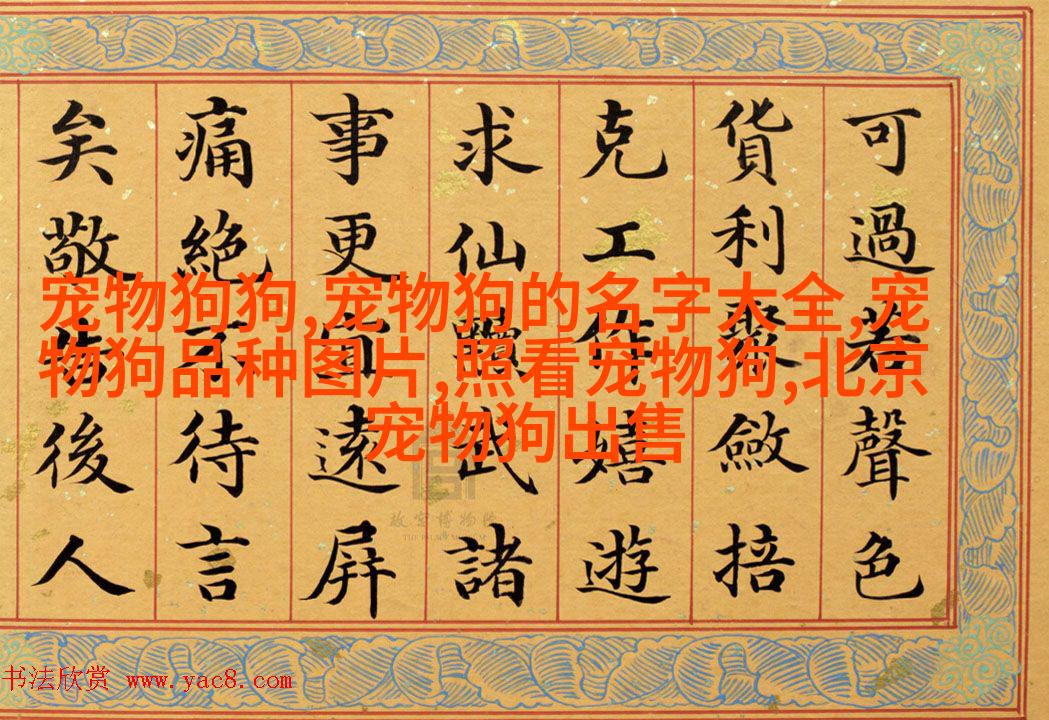 可過若聲色
貨利聚斂掊
克工作嬉遊
求仙黷武諸
事更宜遠屏
痛絕不待言
矣敬告後人
宠物狗狗,宠物狗的名字大全,宠
物狗品种图片,照看宠物狗,北京
宠物狗出售
故宫博物院
THE PALACE MUSEUM
书法欣赏 www.yac8.com